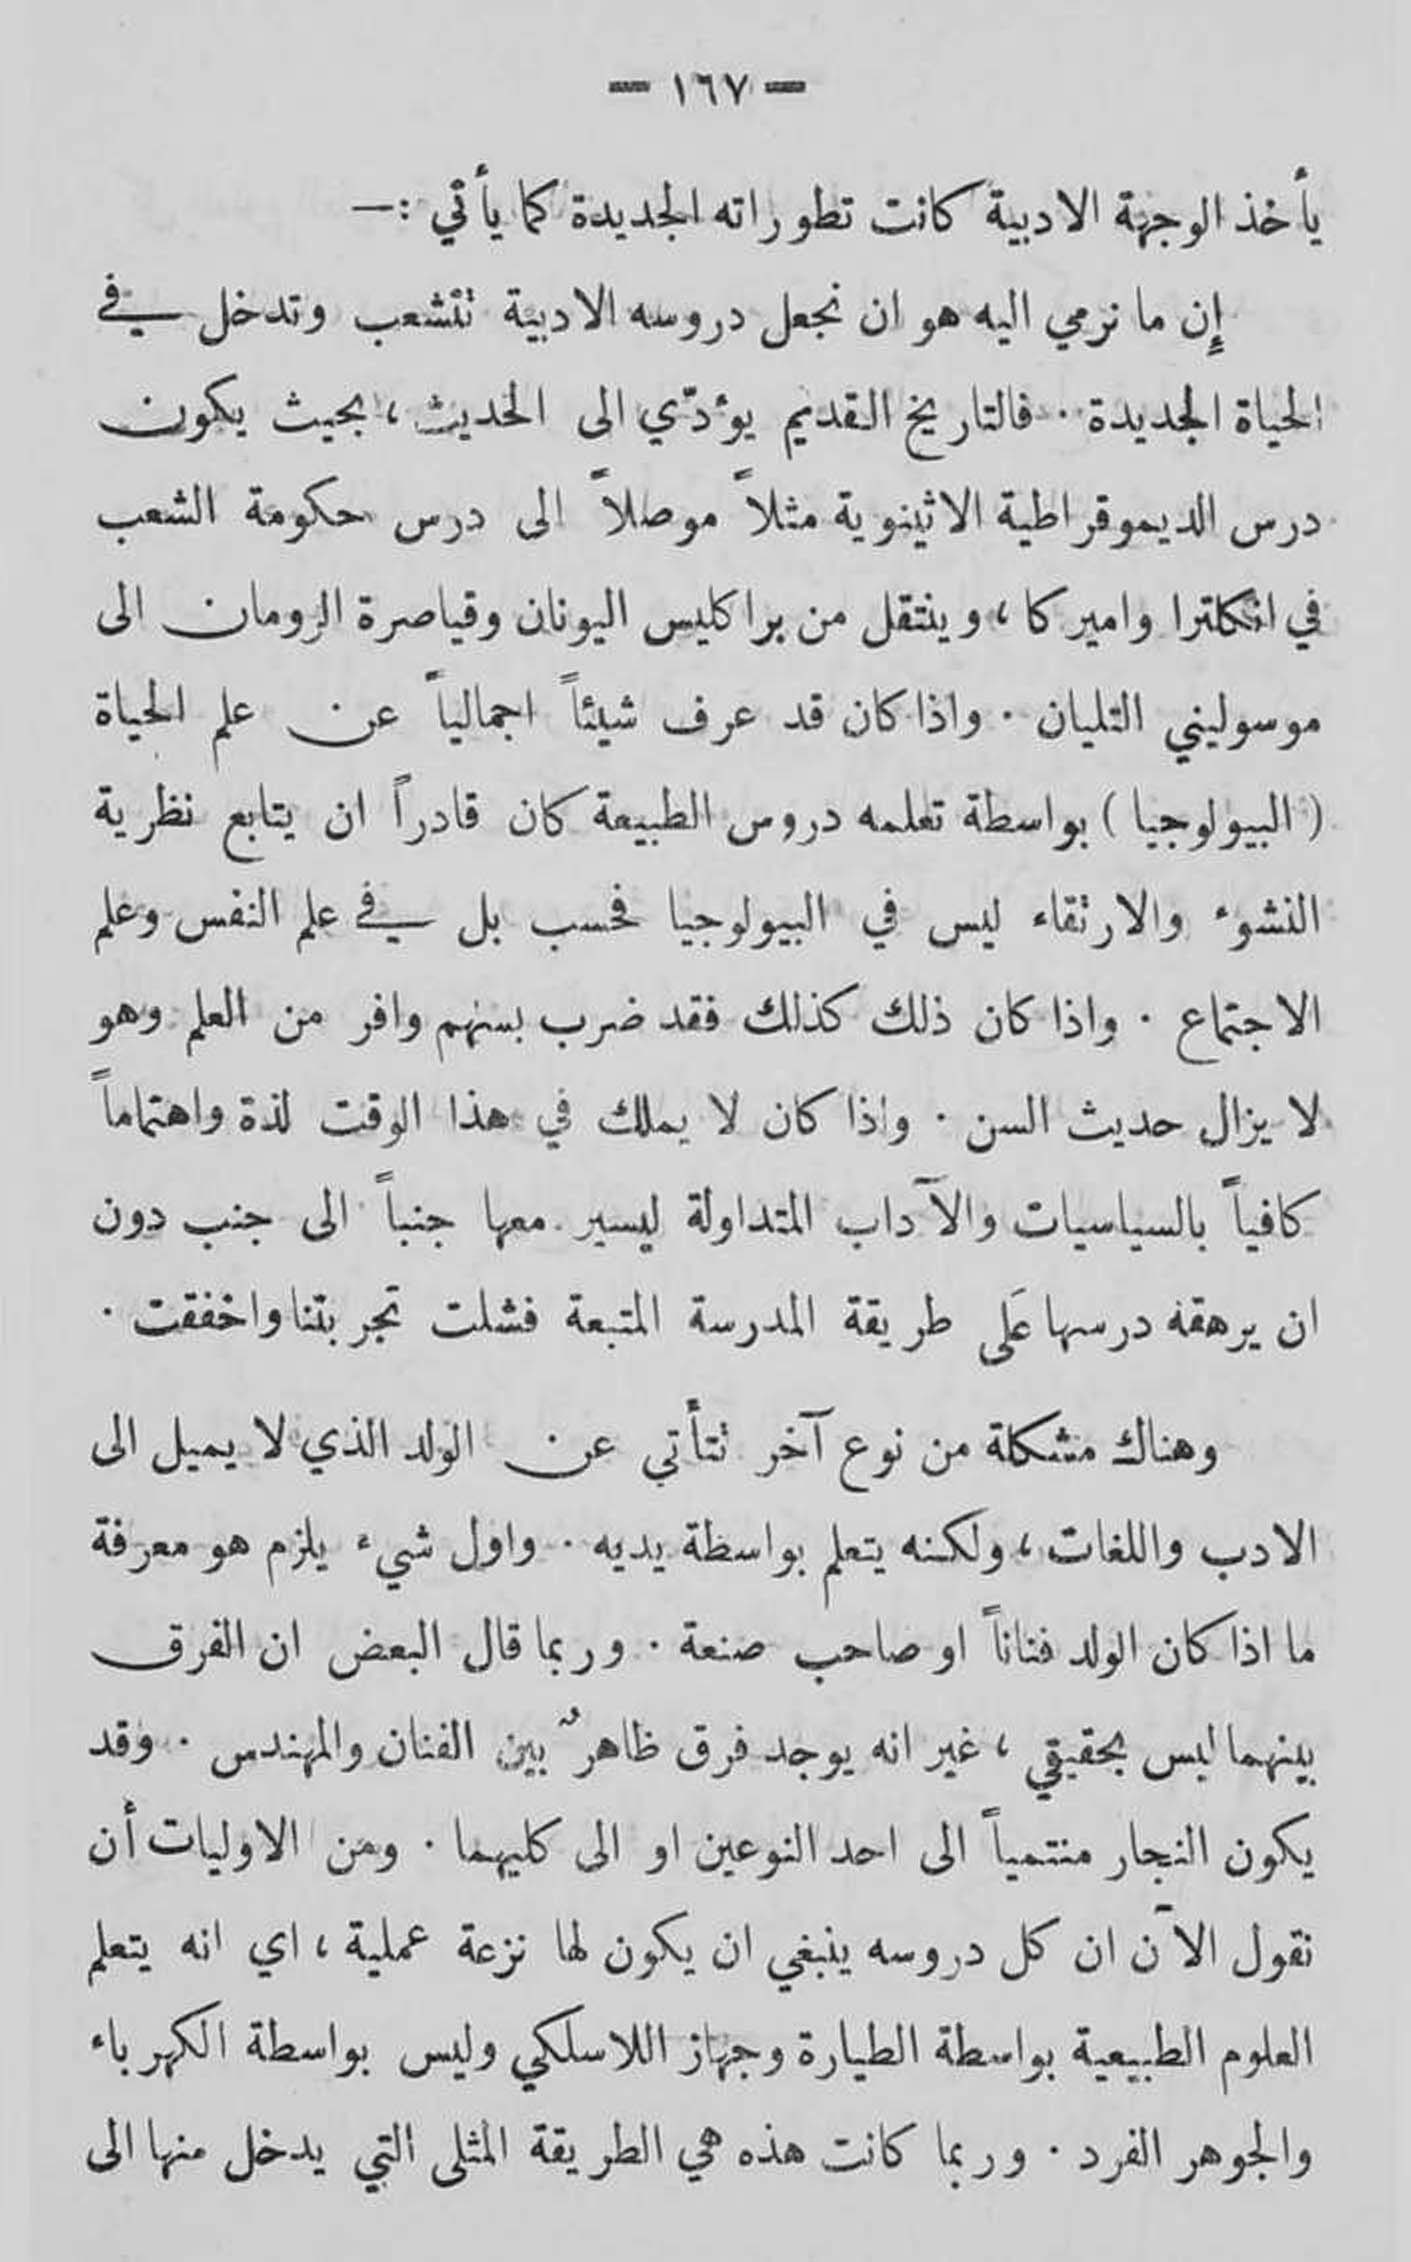 — ١٦٧ —
يأخذ الوجهة الادبية كانت تطوراته الجديدة كما يأتي :—
إِن ما نرمي اليه هو ان نجعل دروسه الادبية تتشعب وتدخل في
الحياة الجديدة . فالتاريخ القديم يؤدّي الى الحديث ، بحيث يكون
درس الديموقراطية الاثينوية مثلاً موصلاً الى درس حكومة الشعب
في انكلترا واميركا ، وينتقل من براكليس اليونان وقياصرة الرومان الى
موسوليني التليان . واذا كان قد عرف شيئاً اجمالياً عن علم الحياة
( البيولوجيا ) بواسطة تعلمه دروس الطبيعة كان قادراً ان يتابع نظرية
النشوء والارتقاء ليس في البيولوجيا فحسب بل في علم النفس وعلم
الاجتماع . واذا كان ذلك كذلك فقد ضرب بسهم وافر من العلم وهو
لا يزال حديث السن . واذا كان لا يملك في هذا الوقت لذة واهتماماً
كافياً بالسياسيات والآداب المتداولة ليسير معها جنباً الى جنب دون
ان يرهقه درسها عَلى طريقة المدرسة المتبعة فشلت تجربتنا واخفقت .
وهناك مشكلة من نوع آخر تتأتي عن الولد الذي لا يميل الى
الادب واللغات ، ولكنه يتعلم بواسطة يديه . واول شيء يلزم هو معرفة
ما اذا كان الولد فناناً او صاحب صنعة . وربما قال البعض ان الفرق
بينهما ليس بحقيقي ، غير انه يوجد فرق ظاهرٌ بين الفنان والمهندس . وقد
يكون النجار منتمياً الى احد النوعين او الى كليهما . ومن الاوليات أن
نقول الآن ان كل دروسه ينبغي ان يكون لها نزعة عملية ، اي انه يتعلم
العلوم الطبيعية بواسطة الطيارة وجهاز اللاسلكي وليس بواسطة الكهرباء
والجوهر الفرد . وربما كانت هذه هي الطريقة المثلى التي يدخل منها الى